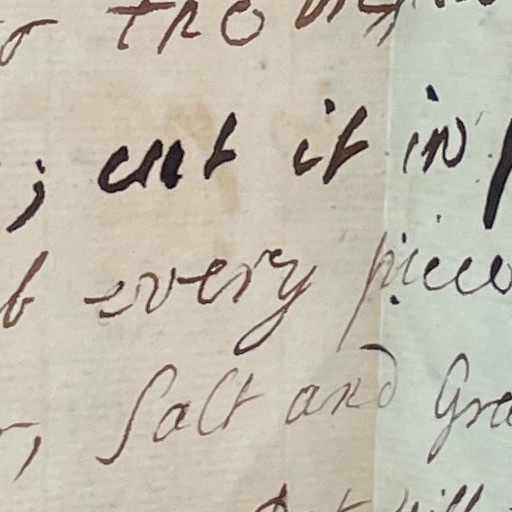 the
; cut it in
every piece
, Salt and Gra